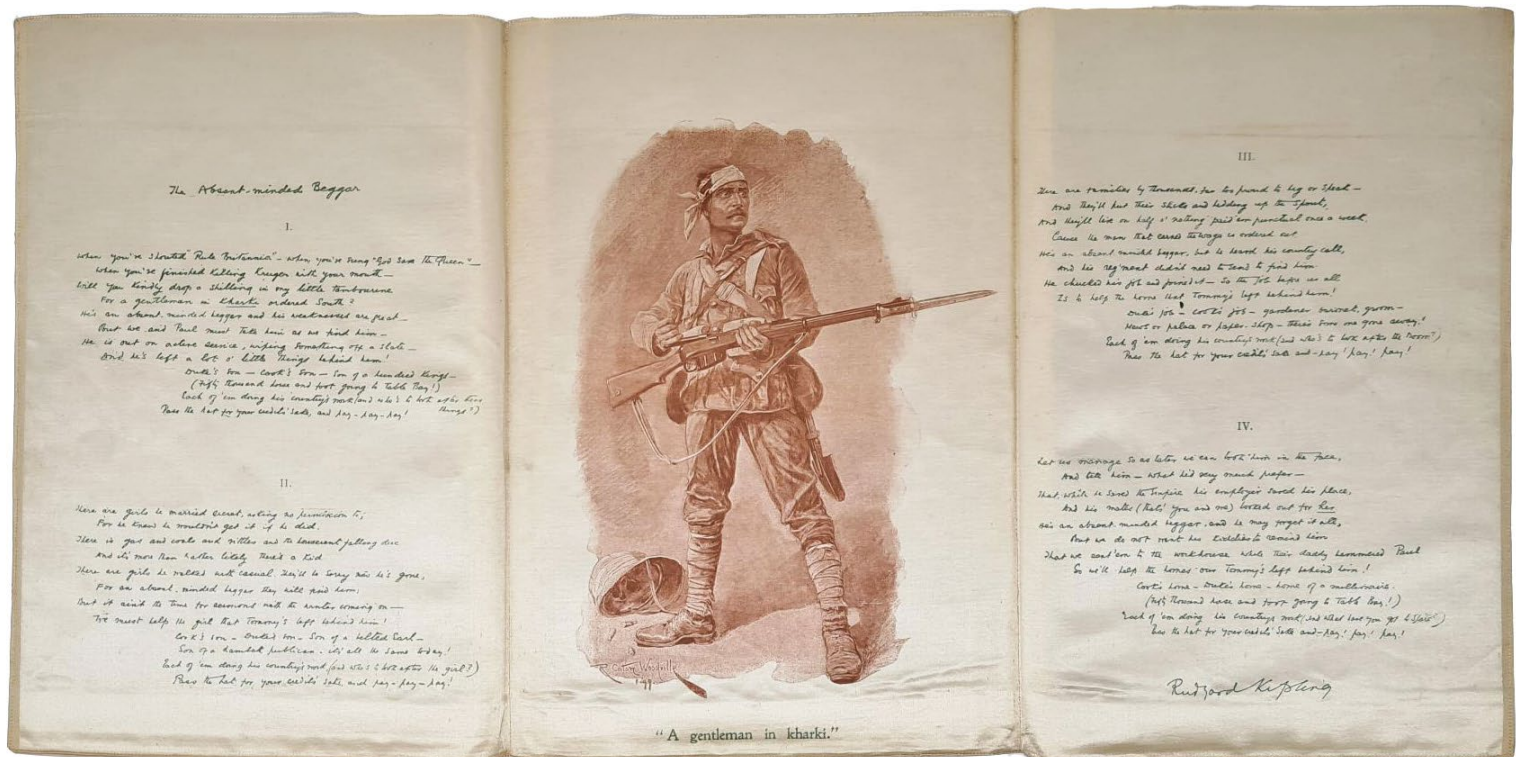 The Absent-minded Beggar
I.
When you've shouted "Rule Britannia" – when you've sung "God Save the Queen" –
When you've finished killing Kruger with your mouth –
Will you kindly drop a shilling in my little tambourine
For a gentleman in kharki ordered South?
He's an absent-minded beggar and his weaknesses are great –
But we and Paul must take him as we find him –
He is out on active service, wiping something off a slate –
And he's left a lot o' little things behind him!
Duke's son – Cook's son – Son of a hundred Kings –
(Fifty thousand horse and foot going to Table Bay!)
Each of 'em doing his country's work (and who's to look after their
things?)
Pass the hat for your credit's sake, and pay – pay – pay!
II.
There are girls he married secret, asking no permission to;
For he knew he wouldn't get it if he did.
There is gas and coals and vittles and the houserent falling due
And it's more than rather likely there's a kid
There are girls he walked with casual. They'll be sorry now he's gone,
For an absent-minded beggar they will find him;
But it ain't the time for sermons with the winter coming on –
We must help the girl that Tommy's left behind him!
Cook's son – Duke's son – Son of a belted Earl –
Son of a Lambeth publican – it's all the same to-day!
Each of 'em doing his country's work (and who's to look after the girl?)
Pass the hat for your credit's sake, and pay – pay – pay!
R. Caton Woodville
1899
"A gentleman in kharki."
III.
There are families by thousands, far too proud to beg or speak –
And they'll put their sticks and bedding up the spout,
And they'll live on half o' nothing paid 'em punctual once a week,
Cause the man that earned the wage is ordered out
He's an absent-minded beggar, but he heard his country call,
And his reg'ment didn't need to send to find him
He chucked his job and joined it – So the job before us all
Is to help the home that Tommy's left behind him!
Duke's job – cook's job – gardener baronet, groom –
Mews or palace or paper-shop – there's some one gone away!
Each of 'em doing his country's work (and who's to look after the room?)
Pass the hat for your credit's sake and – pay! pay! pay!
IV.
Let us manage so as later we can look him in the face,
And tell him – what he'd very much prefer –
That, while he saved the Empire his employer saved his place,
And his mates (that's you and me) looked out for her
He's an absent-minded beggar, and he may forget it all,
But we do not want his kiddies to remind him
That we sent 'em to the workhouse while their daddy hammered Paul
So we'll help the homes our Tommy's left behind him!
Cook's home – Duke's home – home of a millionaire.
(Fifty thousand horse and foot going to Table Bay!)
Each of 'em doing his country's work (and what have you got to spare?)
Pass the hat for your credit's sake and – pay! pay! pay!
Rudyard Kipling